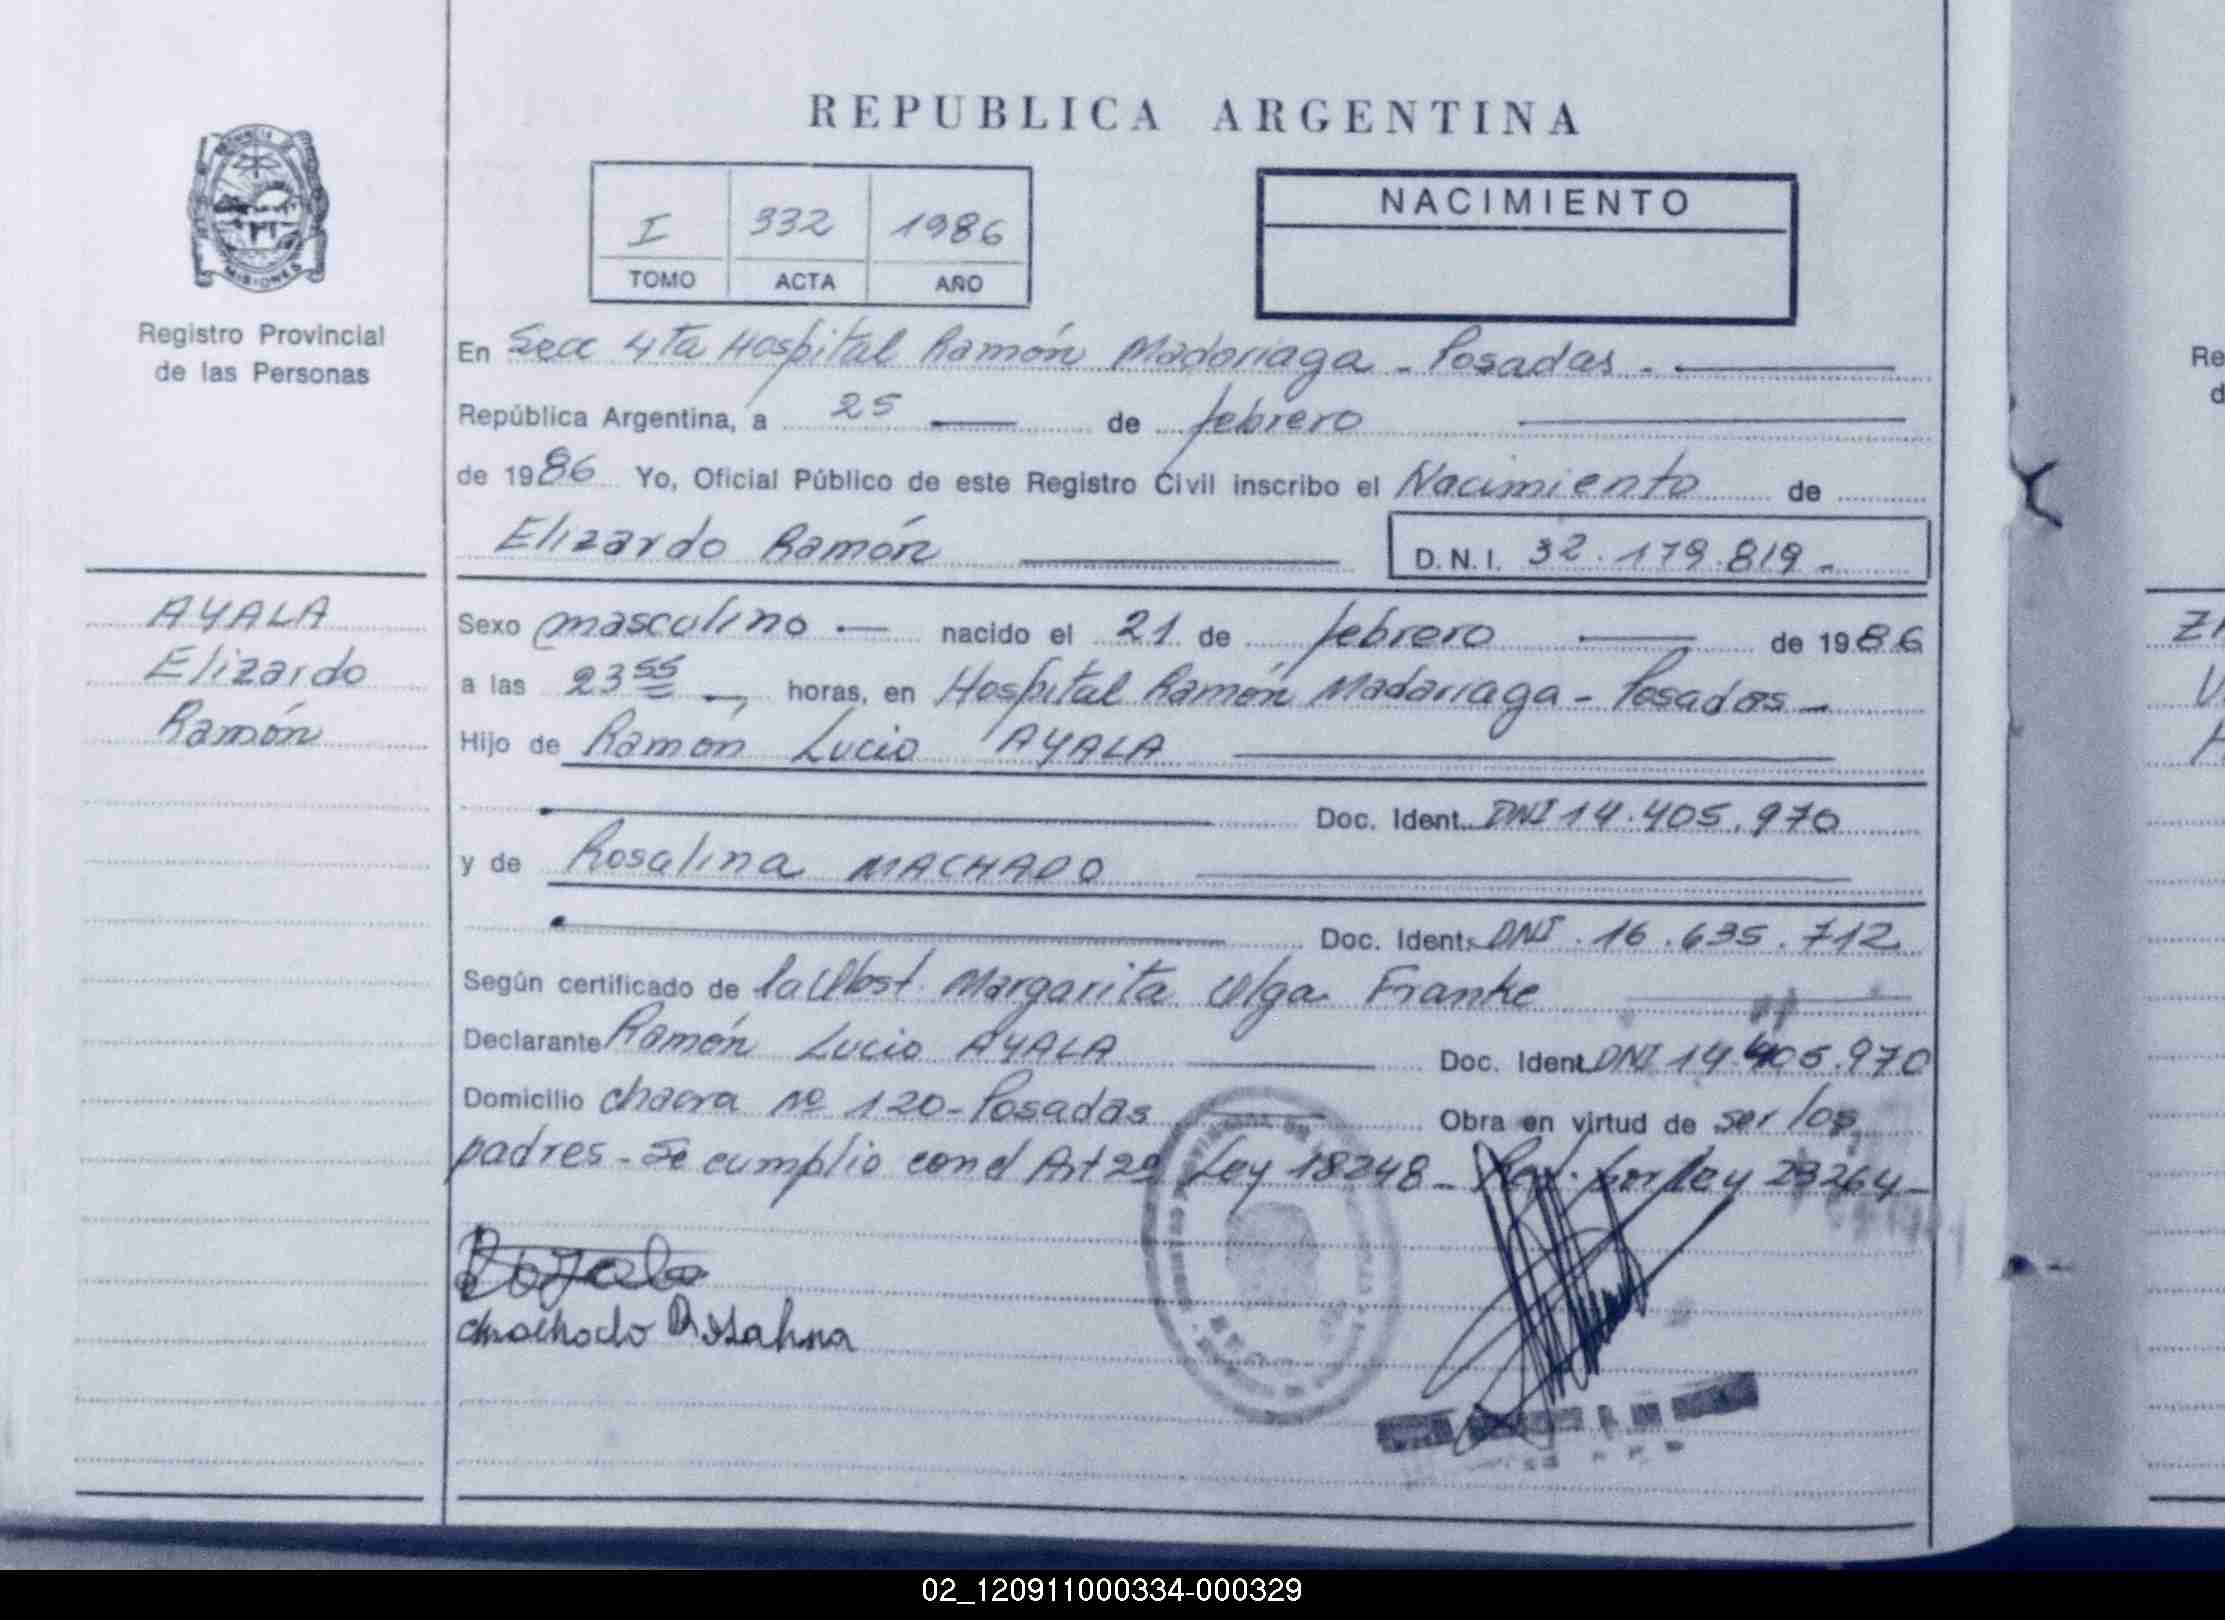 REPUBLICA ARGENTINA
PROVINCIA DE
MISIONES
Registro Provincial
de las Personas
I 332 1986
TOMO ACTA AÑO
NACIMIENTO
En Secc 4ta Hospital Ramón Madariaga - Posadas -
República Argentina, a 25 de febrero
de 1986 Yo, Oficial Público de este Registro Civil inscribo el Nacimiento de
Elizardo Ramón D.N.I. 32.179.819-
AYALA
Elizardo
Ramón
Sexo masculino nacido el 21 de febrero de 1986
a las 23 55 horas, en Hospital Ramón Madariaga - Posadas -
Hijo de Ramón Lucio AYALA
Doc. Ident. DNI 14.405.970
y de Rosalina MACHADO
Doc. Ident. DNI. 16.635.712
Según certificado de la Obst. Margarita Olga Franke
Declarante Ramón Lucio AYALA Doc. Ident. DNI 14.405.970
Domicilio chacra nº 120 - Posadas Obra en virtud de ser los
padres - Se cumplio con el Art 29 Ley 18248 - por ley 23264 -
machado Rosalina
Re
d
02_120911000334-000329